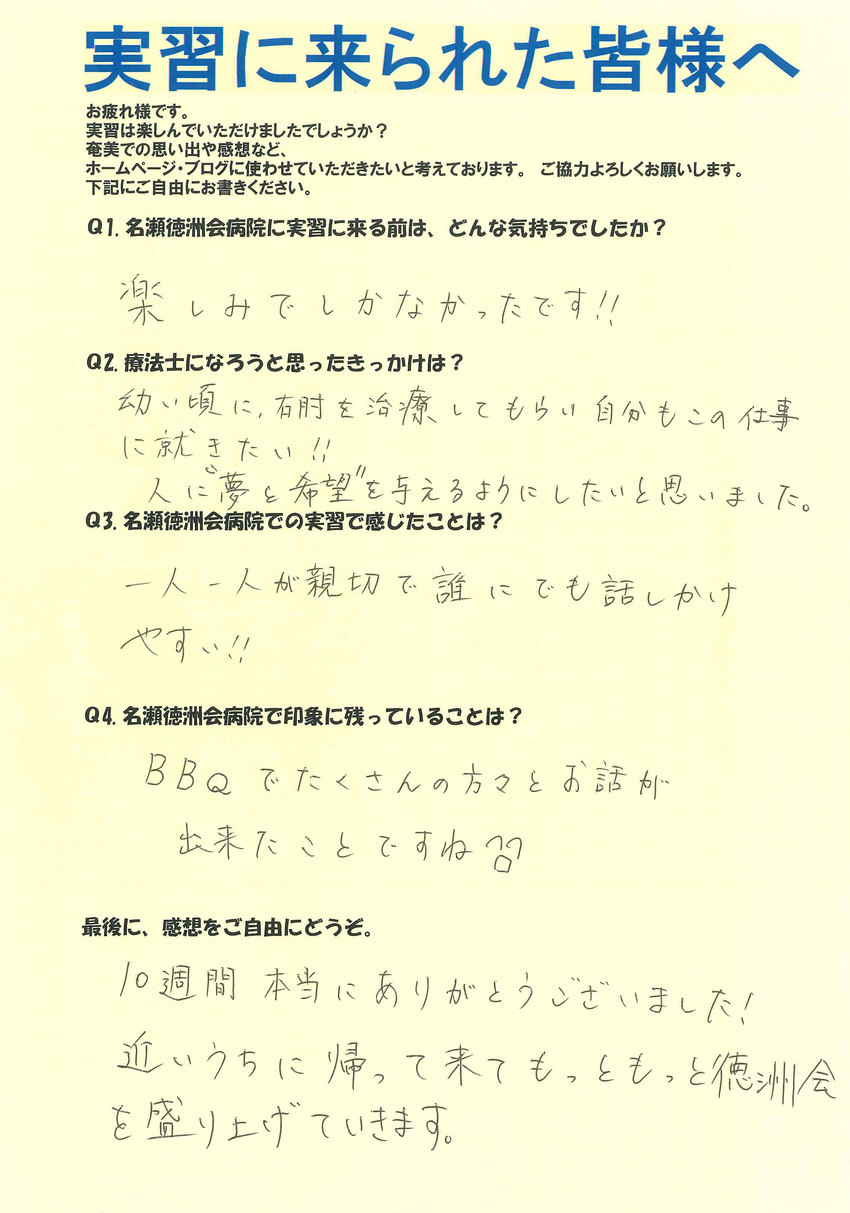 実習に来られた皆様へ
お疲れ様です。
実習は楽しんでいただけましたでしょうか？
奄美での思い出や感想など、
ホームページ・ブログに使わせていただきたいと考えております。　ご協力よろしくお願いします。
下記にご自由にお書きください。
Q1. 名瀬徳洲会病院に実習に来る前は、どんな気持ちでしたか？
楽しみでしかなかったです!!
Q2. 療法士になろうと思ったきっかけは？
幼い頃に, 右肘を治療してもらい自分もこの仕事
に就きたい!!
人に"夢と希望"を与えるようにしたいと思いました。
Q3. 名瀬徳洲会病院での実習で感じたことは？
一人一人が親切で誰にでも話しかけ
やすい!!
Q4. 名瀬徳洲会病院で印象に残っていることは？
BBQでたくさんの方々とお話が
出来たことですね
最後に、感想をご自由にどうぞ。
10週間 本当にありがとうございました!
近いうちに帰って来てもっともっと徳洲会
を盛り上げていきます。